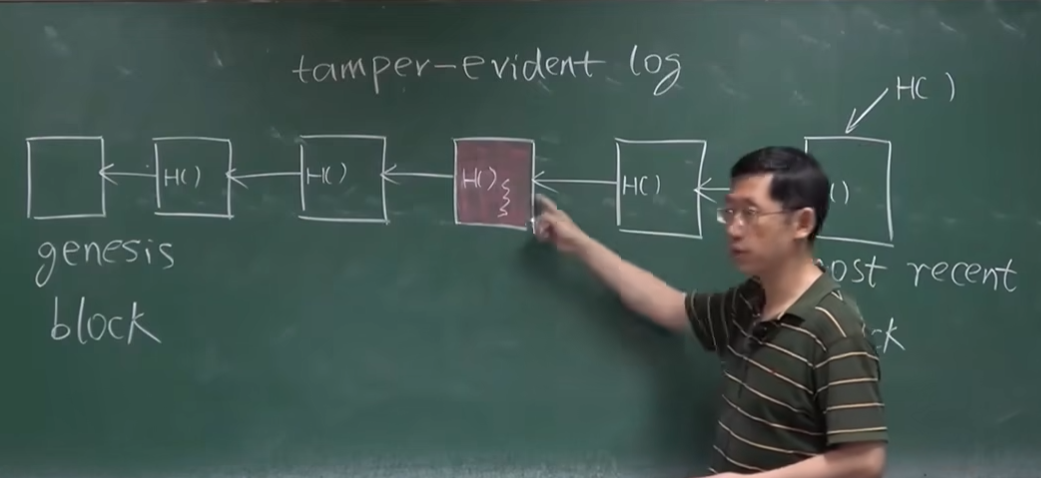 tamper-evident log
H( )
H( )
H( )
H( )
H( )
( )
genesis
block
ost recent
ck